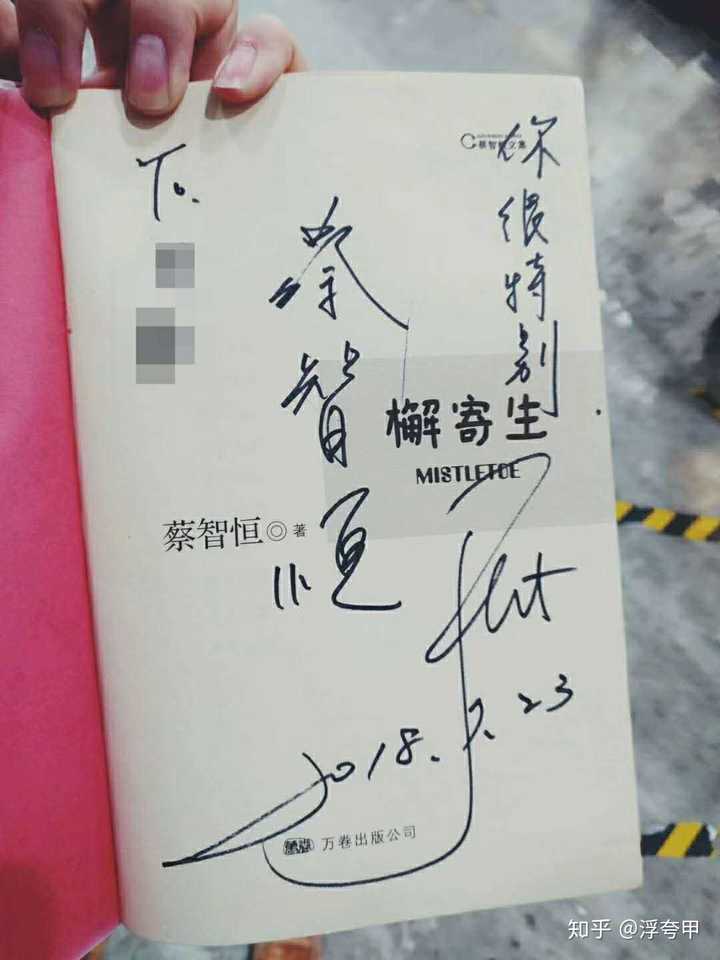 To.
蔡智恒
你很特别
蔡智恒文集
檞寄生
MISTLETOE
蔡智恒◎著
jht
2018.7.23
万卷出版公司
知乎 @浮夸甲